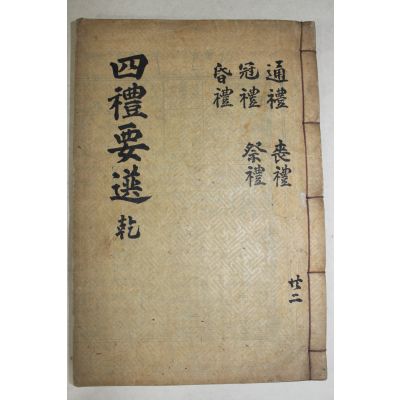 四禮要選 乾
通禮
冠禮
昏禮
喪禮
祭禮
共二